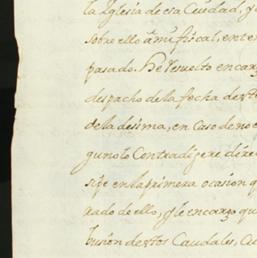 la Iglesia de esa Ciudad, y
sobre ello a mi fiscal, en te
pasado. He resuelto encarg
despacho de la fecha de est
de la desima, en Caso de no e
guno lo Contradigere de re
sise en la primera ocasion q
rado de ello, y le encargo qu
busion de estos Caudales, Cu